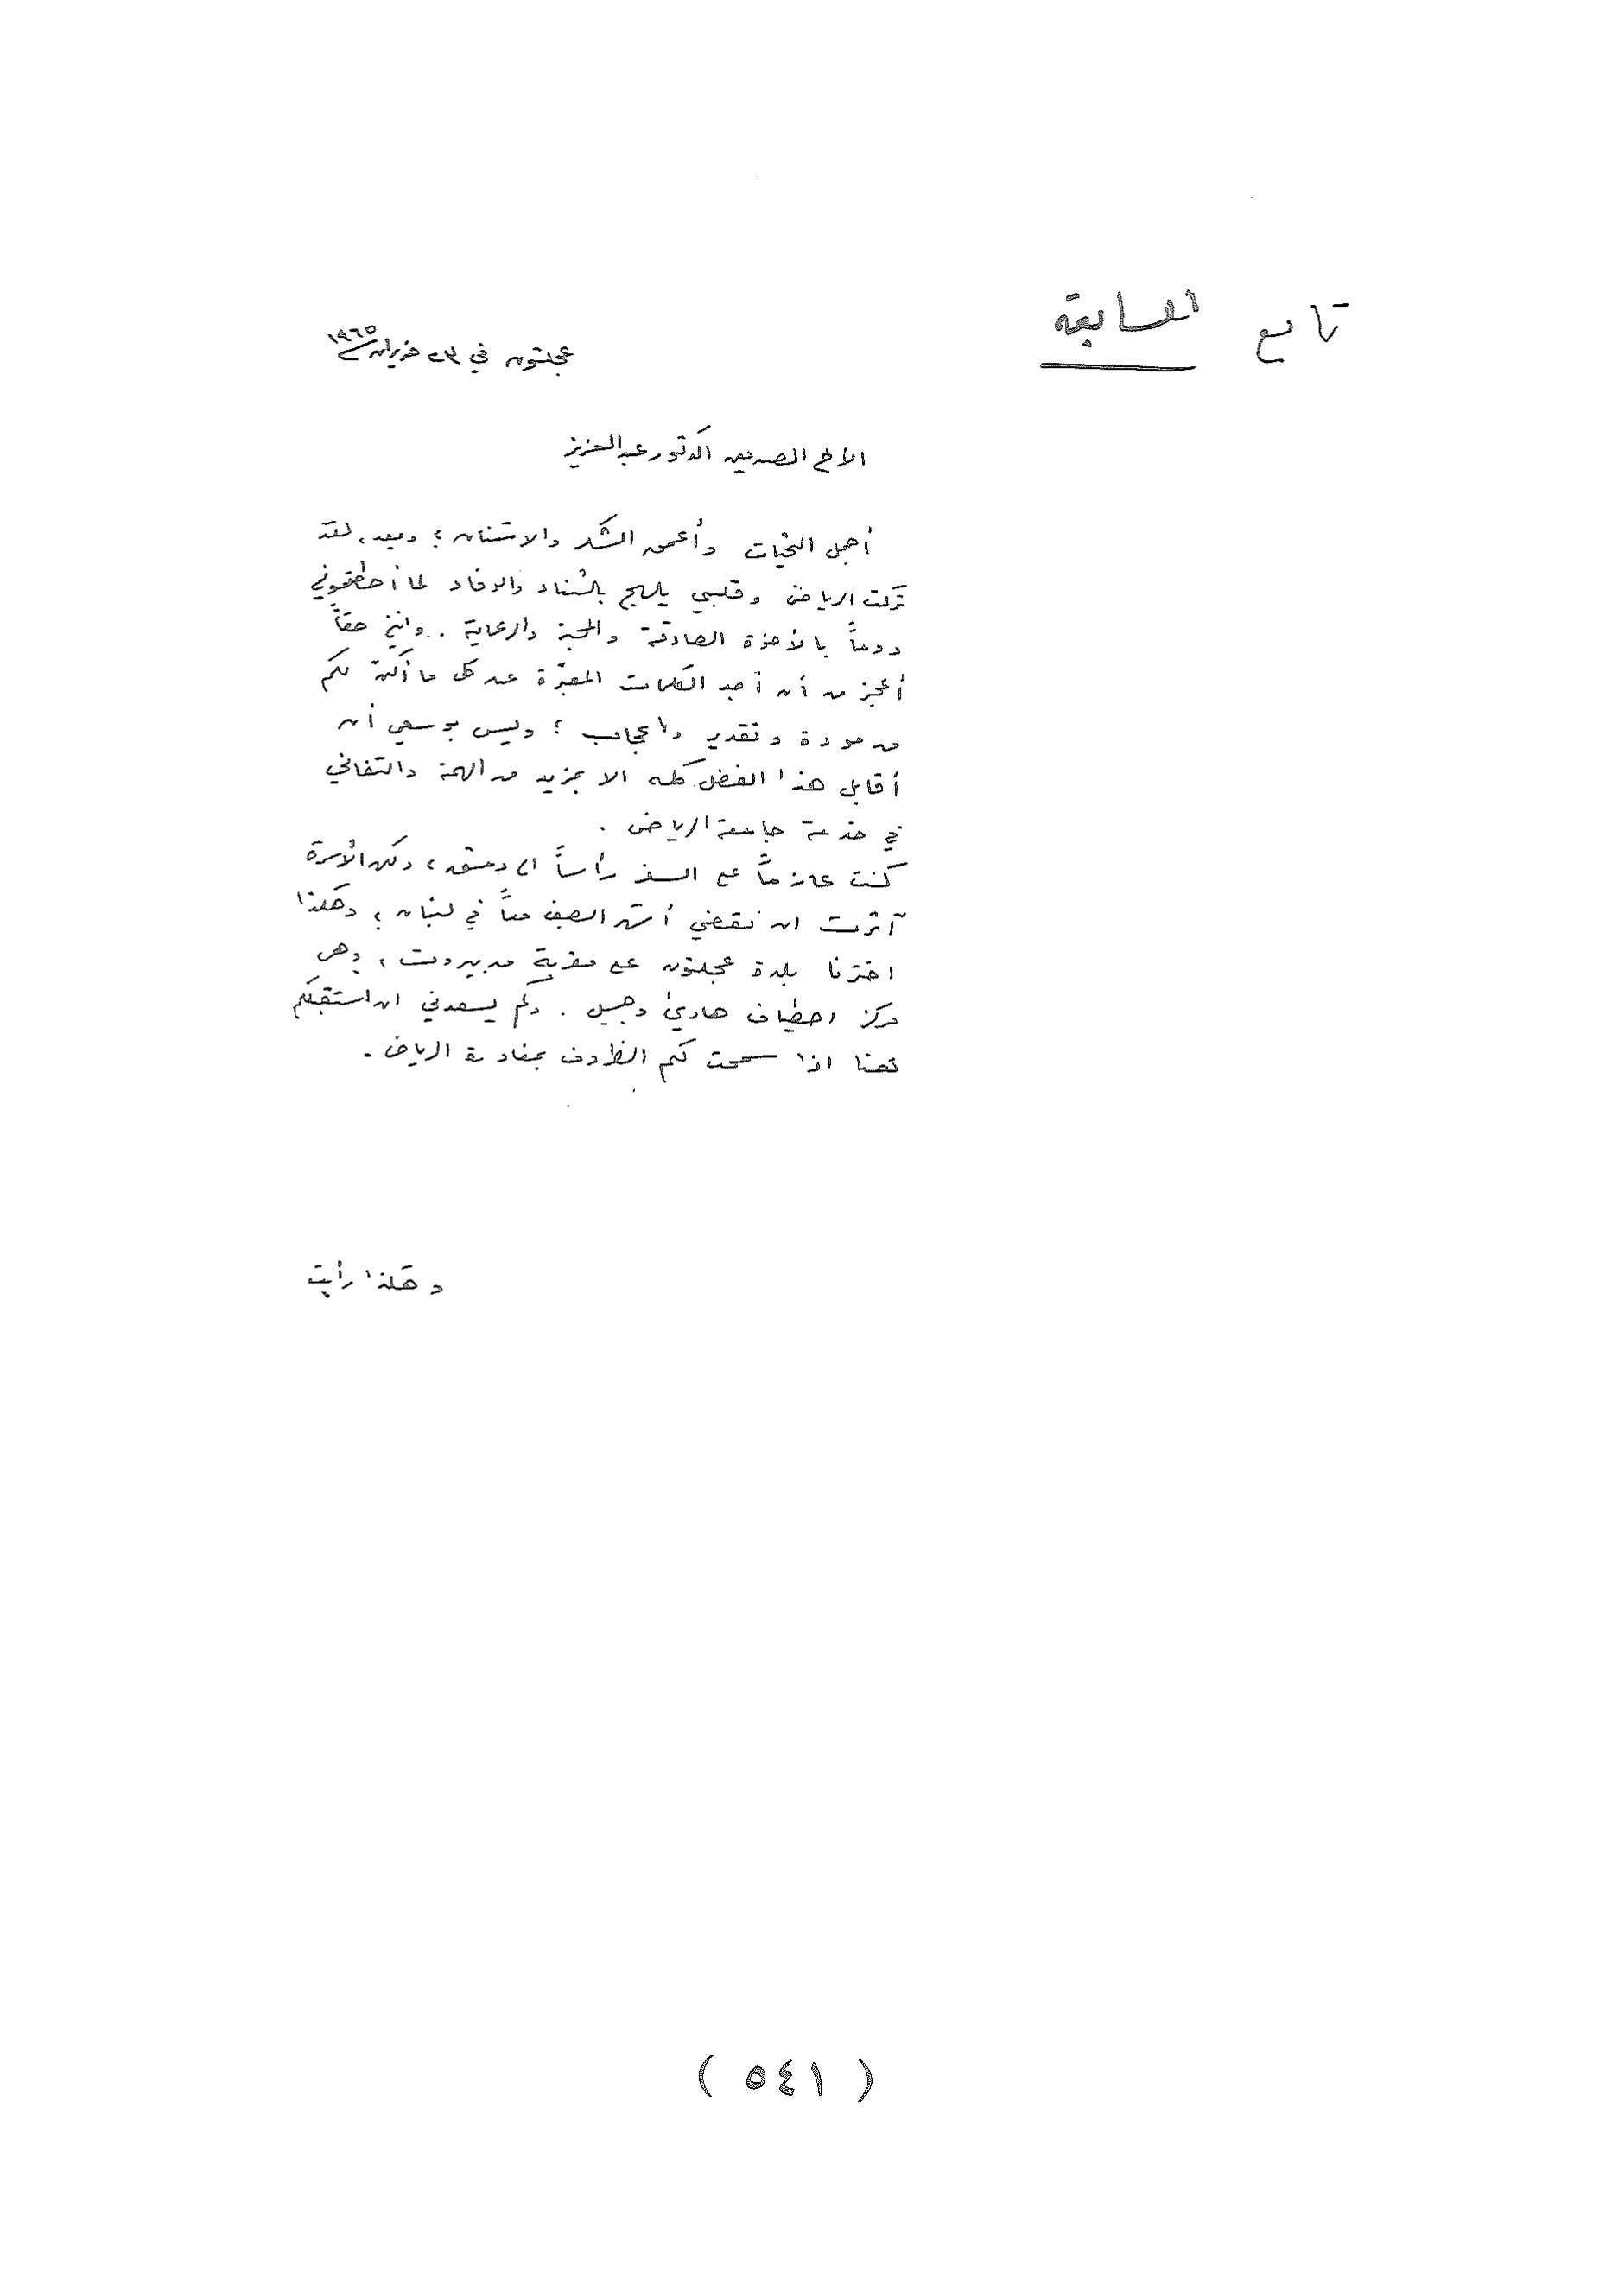 تابع السابقة
عجلتون في ٢٣ حزيران ١٩٦٥
الاخ الصديق الدكتور عبدالعزيز
أجمل التحيات وأعمق الشكر والامتنان ؛ وبعد، لقد
تركت الرياض وقلبي يلهج بالثناء والوفاء لما أحطتموني
دوماً بالأخوة الصادقة والمحبة والرعاية . وانني حقاً
أعجز من أن أجد الكلمات المعبّرة عن كل ما أكنّ لكم
من مودة وتقدير واعجاب ؛ وليس بوسعي أن
أقابل هذا الفضل كله الا بمزيد من الهمة والتفاني
في خدمة جامعة الرياض .
كنت عازماً على السفر رأساً الى دمشق ، ولكن الأسرة
آثرت ان نقضي أشهر الصيف معاً في لبنان ؛ وهكذا
اخترنا بلدة عجلتون على مقربة من بيروت ، وهي
مركز اصطياف هادئ وجميل . ولكم يسعدني ان استقبلكم
هنا اذا سمحت لكم الظروف بمغادرة الرياض .
وهكذا رأيت
( ٥٤١ )